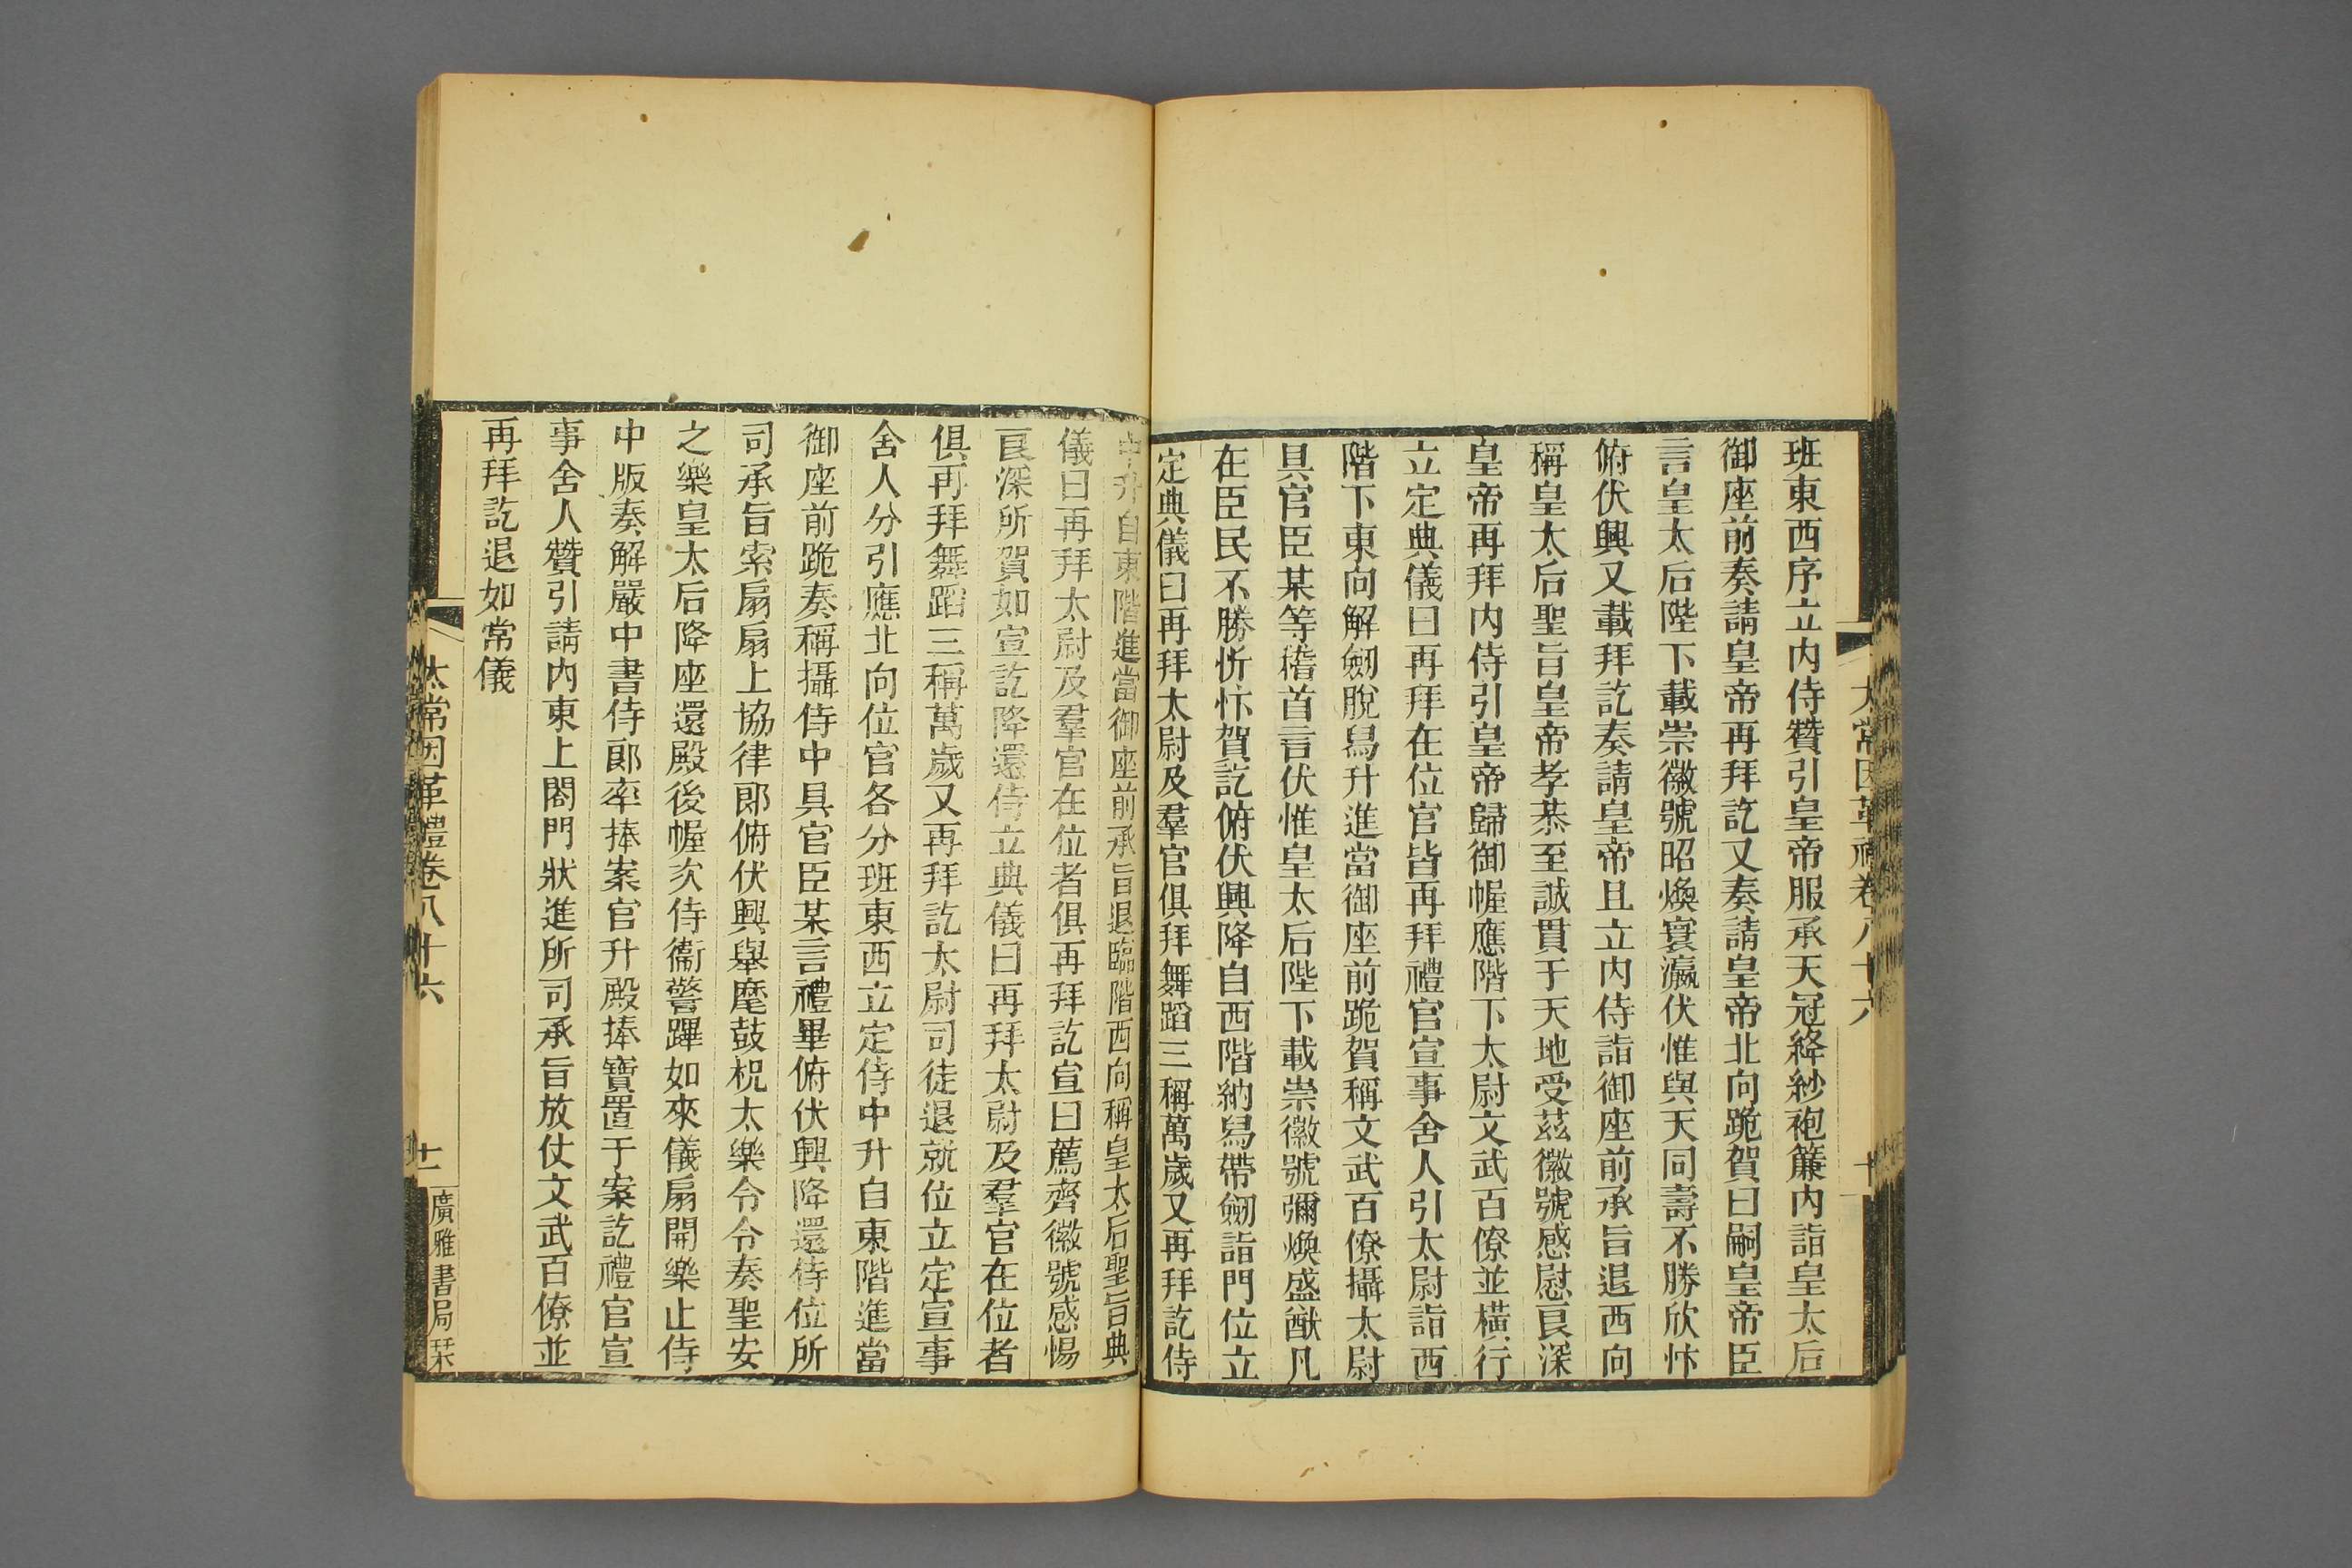 太常因革禮卷八十六 十
班東西序立內侍贊引皇帝服承天冠絳紗袍簾內詣皇太后
御座前奏請皇帝再拜訖又奏請皇帝北向跪賀曰嗣皇帝臣
言皇太后陛下載崇徽號昭煥寰瀛伏惟與天同壽不勝欣忭
俯伏興又載拜訖奏請皇帝且立內侍詣御座前承旨退西向
稱皇太后聖旨皇帝孝恭至誠貫于天地受茲徽號感慰良深
皇帝再拜內侍引皇帝歸御幄應階下太尉文武百僚並橫行
立定典儀曰再拜在位官皆再拜禮官宣事舍人引太尉詣西
階下東向解劒脫舄升進當御座前跪賀稱文武百僚攝太尉
具官臣某等稽首言伏惟皇太后陛下載崇徽號彌煥盛猷凡
在臣民不勝忻忭賀訖俯伏興降自西階納舄帶劒詣門位立
定典儀曰再拜太尉及羣官俱拜舞蹈三稱萬歲又再拜訖侍
中升自東階進當御座前承旨退臨階西向稱皇太后聖旨典
儀曰再拜太尉及羣官在位者俱再拜訖宣曰薦齊徽號感惕
良深所賀如宣訖降還侍立典儀曰再拜太尉及羣官在位者
俱再拜舞蹈三稱萬歲又再拜訖太尉司徒退就位立定宣事
舍人分引應北向位官各分班東西立定侍中升自東階進當
御座前跪奏稱攝侍中具官臣某言禮畢俯伏興降還侍位所
司承旨索扇扇上協律郎俯伏興舉麾鼓柷太樂令令奏聖安
之樂皇太后降座還殿後幄次侍衞警蹕如來儀扇開樂止侍
中版奏解嚴中書侍郎率捧案官升殿捧寶置于案訖禮官宣
事舍人贊引請內東上閤門狀進所司承旨放仗文武百僚並
再拜訖退如常儀
太常因革禮卷八十六 十一 廣雅書局栞